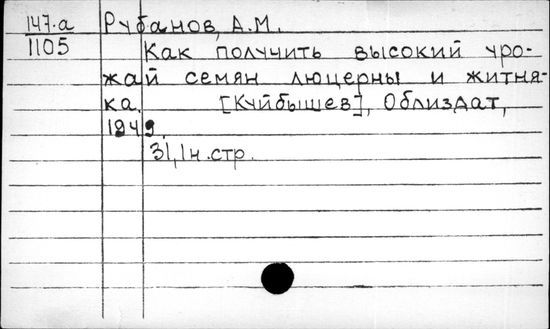 147.а Рубанов, А.М.
1105 Как получить высокий уро-
жай семян люцерны и житня-
ка. [Куйбышев], Облиздат,
1949.
31,1н.стр.